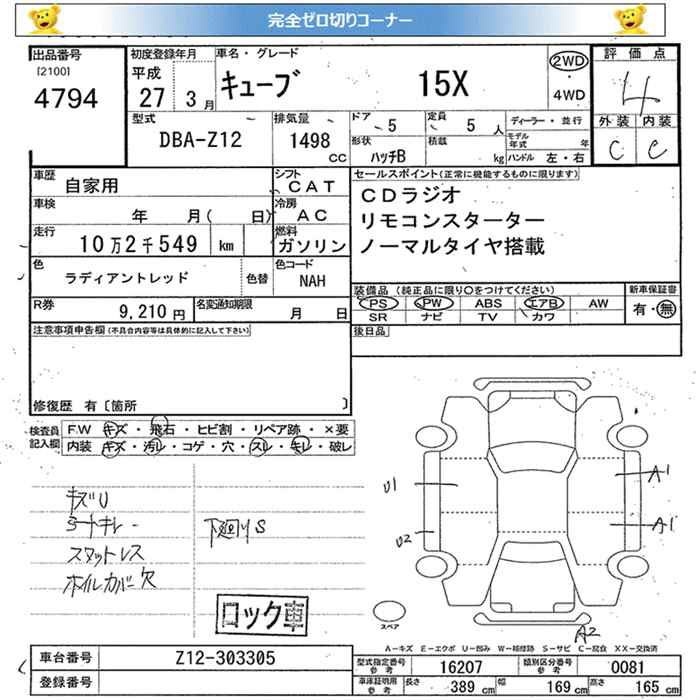 完全ゼロ切りコーナー
出品番号
[2100]
4794
初度登録年月
平成
27 3月
車名・グレード
キューブ 15X
2WD
・
4WD
評価点
4
外装 内装
C C
型式
DBA-Z12
排気量
1498
CC
ドア 5
定員 5人
ディーラー・並行
形状
ハッチB
積載 kg
モデル年式 年
ハンドル 左・右
車歴
自家用
シフト
CAT
車検
年 月( 日)
冷房
AC
走行
10万2千549 km
燃料
ガソリン
色
ラディアントレッド
色替
色コード
NAH
R券
9,210円
名変通知期限
月 日
セールスポイント(正常に機能するものに限ります)
CDラジオ
リモコンスターター
ノーマルタイヤ搭載
装備品(純正品に限り○をつけてください)
PS PW ABS エアB AW
SR ナビ TV カワ
新車保証書
有・無
後日品
注意事項申告欄(不具合内容等は具体的に記入して下さい)
修復歴 有〔箇所 〕
検査員
記入欄
F.W キズ・飛石・ヒビ割・リペア跡・×要
内装 キズ・汚レ・コゲ・穴・スレ・キレ・破レ
キズU
シートキレ
スタットレス
ホイルカバー欠
下廻りS
ロック車
U1
U2
A1
A1
A2
スペア
A-キズ E-エクボ U-凹み W-補修跡 S-サビ C-腐食 XX-交換済
車台番号
Z12-303305
登録番号
型式指定番号
参考
16207
類別区分番号
参考
0081
車庫証明用
参考
長さ 389cm
幅 169cm
高さ 165cm